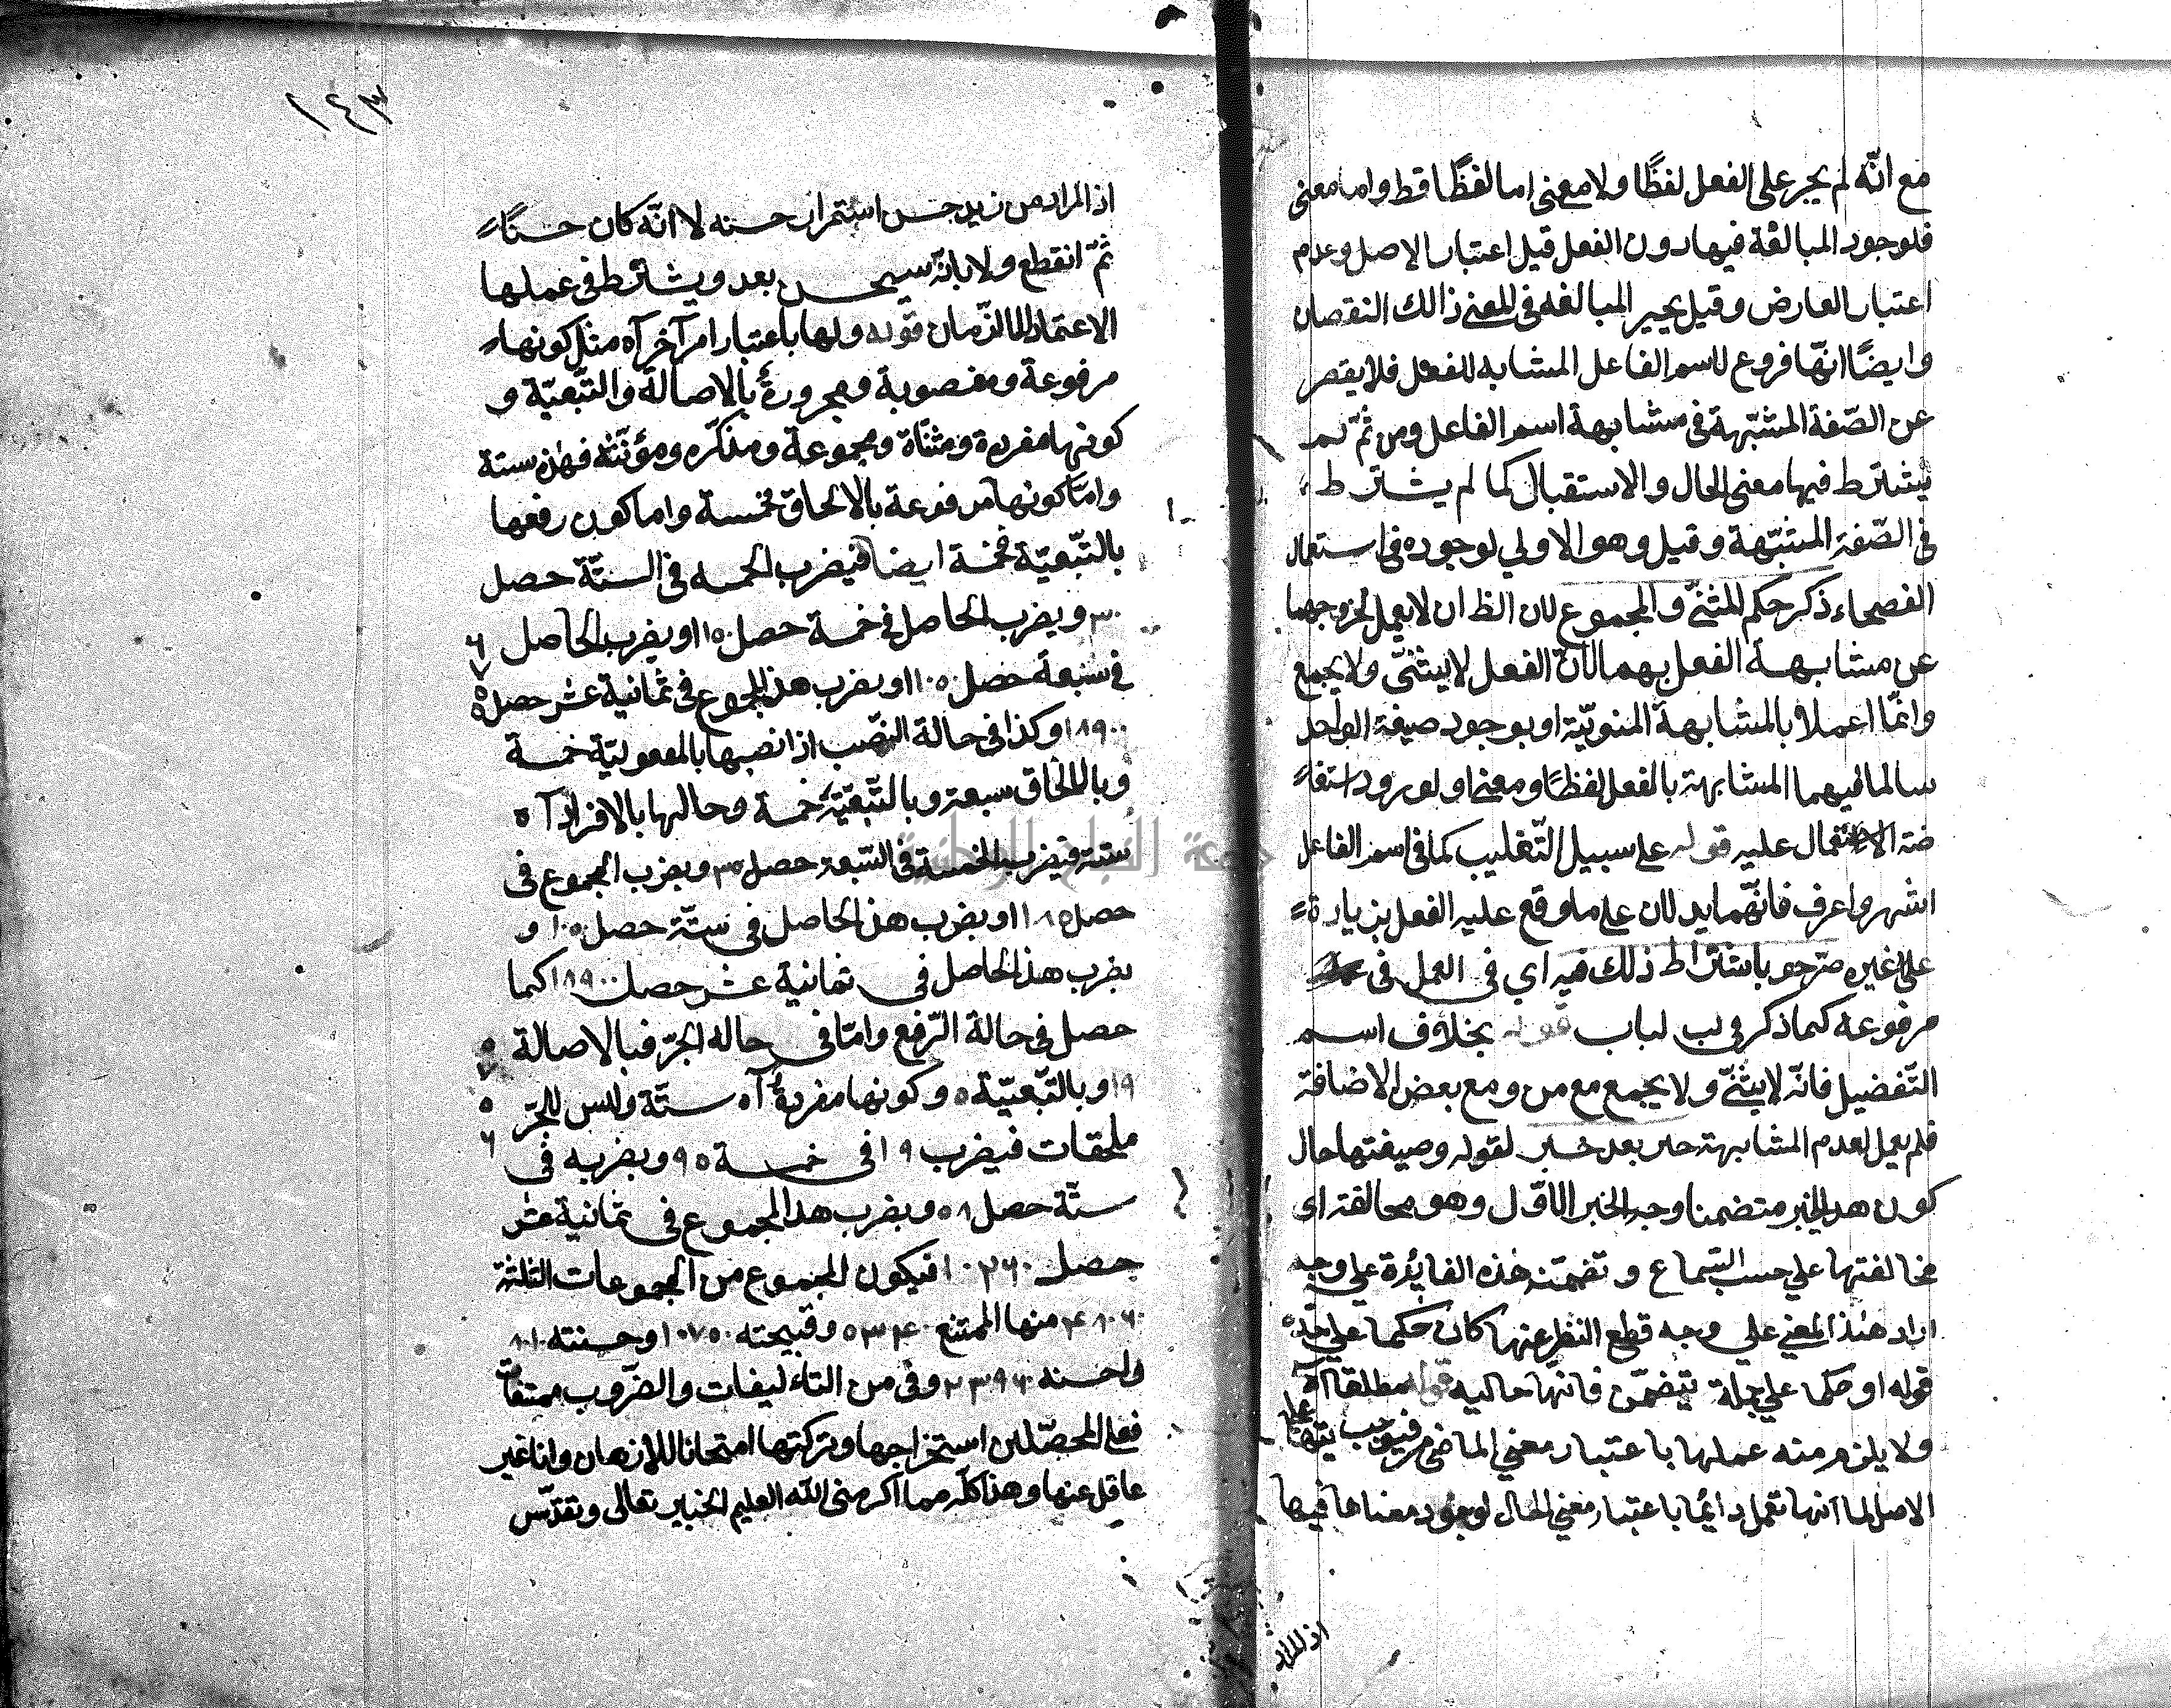 مع انّه لم يجر على الفعل لفظًا ولا معنى اما لفظًا قط واما معنى
فلوجود المبالغة فيها دون الفعل قيل اعتبار الاصل وعدم
اعتبار العارض وقيل يجبر المبالغه فى المعنى ذالك النقصان
وايضًا انّها فروع لاسم الفاعل المشابه للفعل فلا يقصر
عن الصّفة المشبّهة فى مشابهة اسم الفاعل ومن ثمّ لم
يشترط فيها معنى الحال والاستقبال كما لم يشترط
فى الصّفة المشبّهة وقيل وهو الاولي لوجوده فى استعمال
الفصحاء ذكر حكم المثنّى والمجموع لان الظ ان لا يعمل لخروجهما
عن مشابهة الفعل بهما لانّ الفعل لا يثنّى ولا يجمع
وانّما اعملا بالمشابهة المنويّة او بوجود صيغة الواحد
سالما فيهما المشابهة بالفعل لفظًا ومعنى او لورود
الاحتمال عليه قوله على سبيل التّغليب كما فى اسم الفاعل
اشهر واعرف فانّهما يدلان على ما وقع عليه الفعل بزيادة
على غيره صرّحو باشتراط ذلك فيه اي في العمل فى
مرفوعه كما ذكر فى لب لباب قوله بخلاف اسم
التّفضيل فانّه لا يثنّى ولا يجمع مع من ومع بعض الاضافة
فلم يعمل لعدم المشابهة خبر بعد خبر لقوله وصيغتها حال
كون هذا الخبر متضمنا وجه الخبر الاوّل وهو مخالفته اى
مخالفتها علي حسب السّماع وتضمّنه هذه الفائدة علي وجه
اراد هذا المعني علي وجه قطع النظر عنها كان حكما علي حدة
قوله او حكما علي جملة تتضمّن فانّها حاليه قوله مطلقا آه
ولا يلزم منه عملها باعتبار معني الماضى فيوجب
على
الاصل لما انها تعمل دائما باعتبار معني الحال لوجود معناها فيها
اذ المراد
١٤٣
اذ المراد من زيد حسن استمرار حسنه لا انّه كان حسنًا
ثمّ انقطع ولا بانّه سيحسن بعد ويشترط فى عملها
الاعتماد لا الزّمان قوله ولها باعتبار امر آخر آه مثل كونها
مرفوعة ومنصوبة ومجرورة بالاصالة والتّبعيّة و
كونها مفردة ومثنّاة ومجموعة ومذكّره ومؤنّثة فهذه ستة
وامّا كونها مرفوعة بالالحاق فخمسة واما كون رفعها
بالتّبعيّة فخمسة ايضا فيضرب الخمسه فى السّتّة حصل
٣٠ ويضرب الحاصل فى خمسة حصل ١٥٠ ويضرب الحاصل
٦
٧
فى سبعة حصل ١٠٥٠ ويضرب هذا المجموع فى ثمانية عشر حصل
٥
٥
١٨٩٠٠ وكذا فى حالة النصّب اذا نصبها بالمفعوليّة خمسة
وبالالحاق سبعة وبالتّبعيّة خمسة وحالها بالافراد آه
ستة فيضرب الخمسة فى السّبعة حصل ٣٥ ويضرب المجموع فى
حصل ويضرب هذا الحاصل فى ستّة حصل ١٠٥٠ و
يضرب هذا الحاصل فى ثمانية عشر حصل ١٨٩٠٠ كما
حصل فى حالة الرّفع وامّا فى حالة الجرّ فبالاصالة
١٩ وبالتّبعيّة ٥ وكونها مفردة آه ستّة وليس للجرّ
٥
٦
ملحقات فيضرب ١٩ فى خمسة ٩٥ ويضربه فى
ستّة حصل ويضرب هذا المجموع فى ثمانية عشر
حصل ١٠٢٦٠ فيكون المجموع من المجموعات الثلثة
٤٨٠٦٠ منها الممتنع ٥٣٤٠ وقبيحته ١٠٧٥٠ وحسنته
واحسنه ٢٣٩٦٠ وفى من التاءليفات والضّروب
فعلى المحصّلين استخراجها وتركتها امتحانا للاذهان وانا غير
غافل عنها وهذا كلّه مما اكرمنى الله العليم الخبير تعالى وتقدّس
جامعة النجاح الوطنية